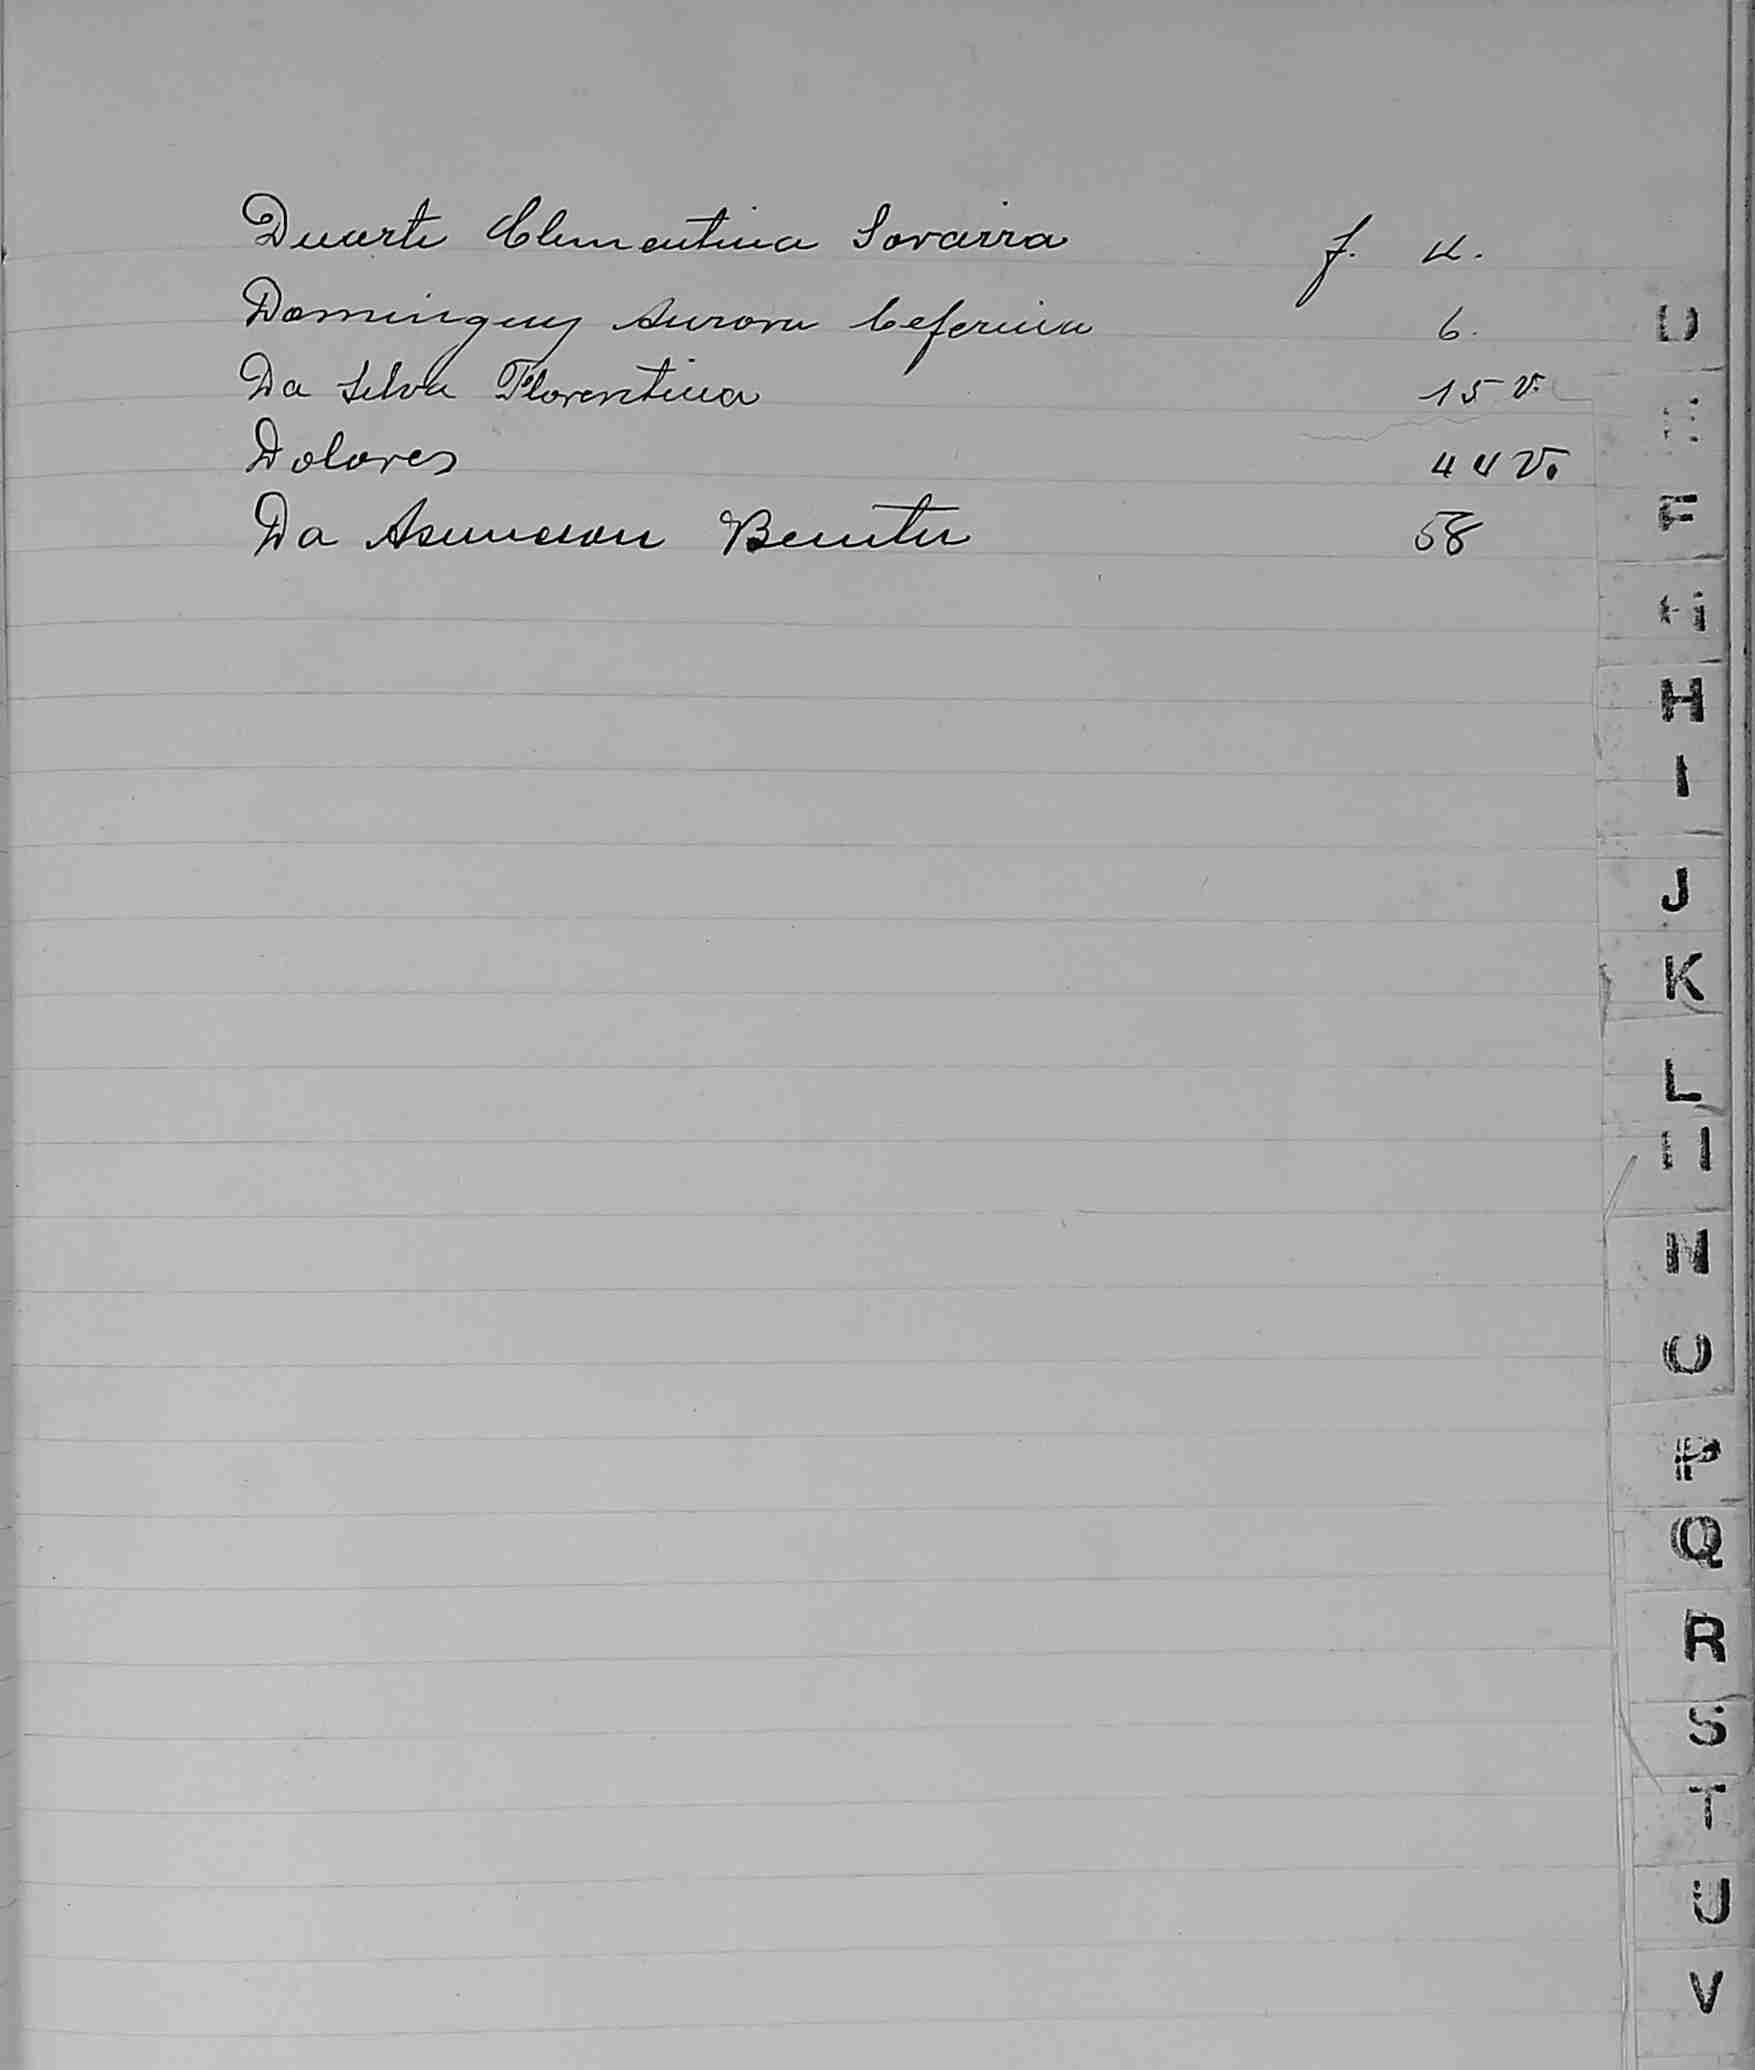 Duarte Clementina Savarra f. 4.
Dominguez Aurora Ceferina 6.
Da Silva Florentina 15 v.
Dolores 44 v.
Da Asuncion Benita 58
D
F
H
I
J
K
L
N
O
P
Q
R
S
T
U
V